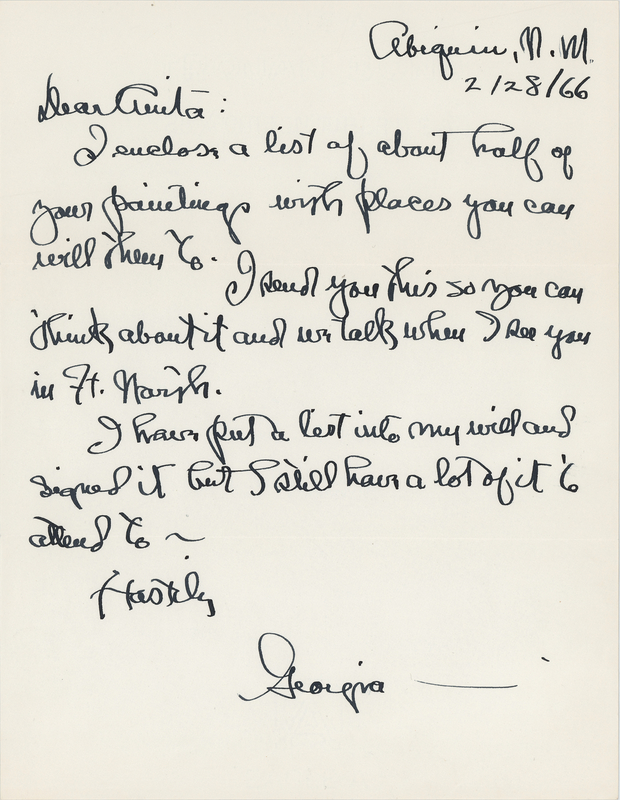 Abiquiu, N.M.
2/28/66
Dear Anita:
I enclose a list of about half of
your paintings with places you can
will them to.
I send you this so you can
think about it and we talk when I see you
in Ft. Worth.
I have put a list into my will and
signed it but I still have a lot of it to
attend to ~
Hastily
Georgia —